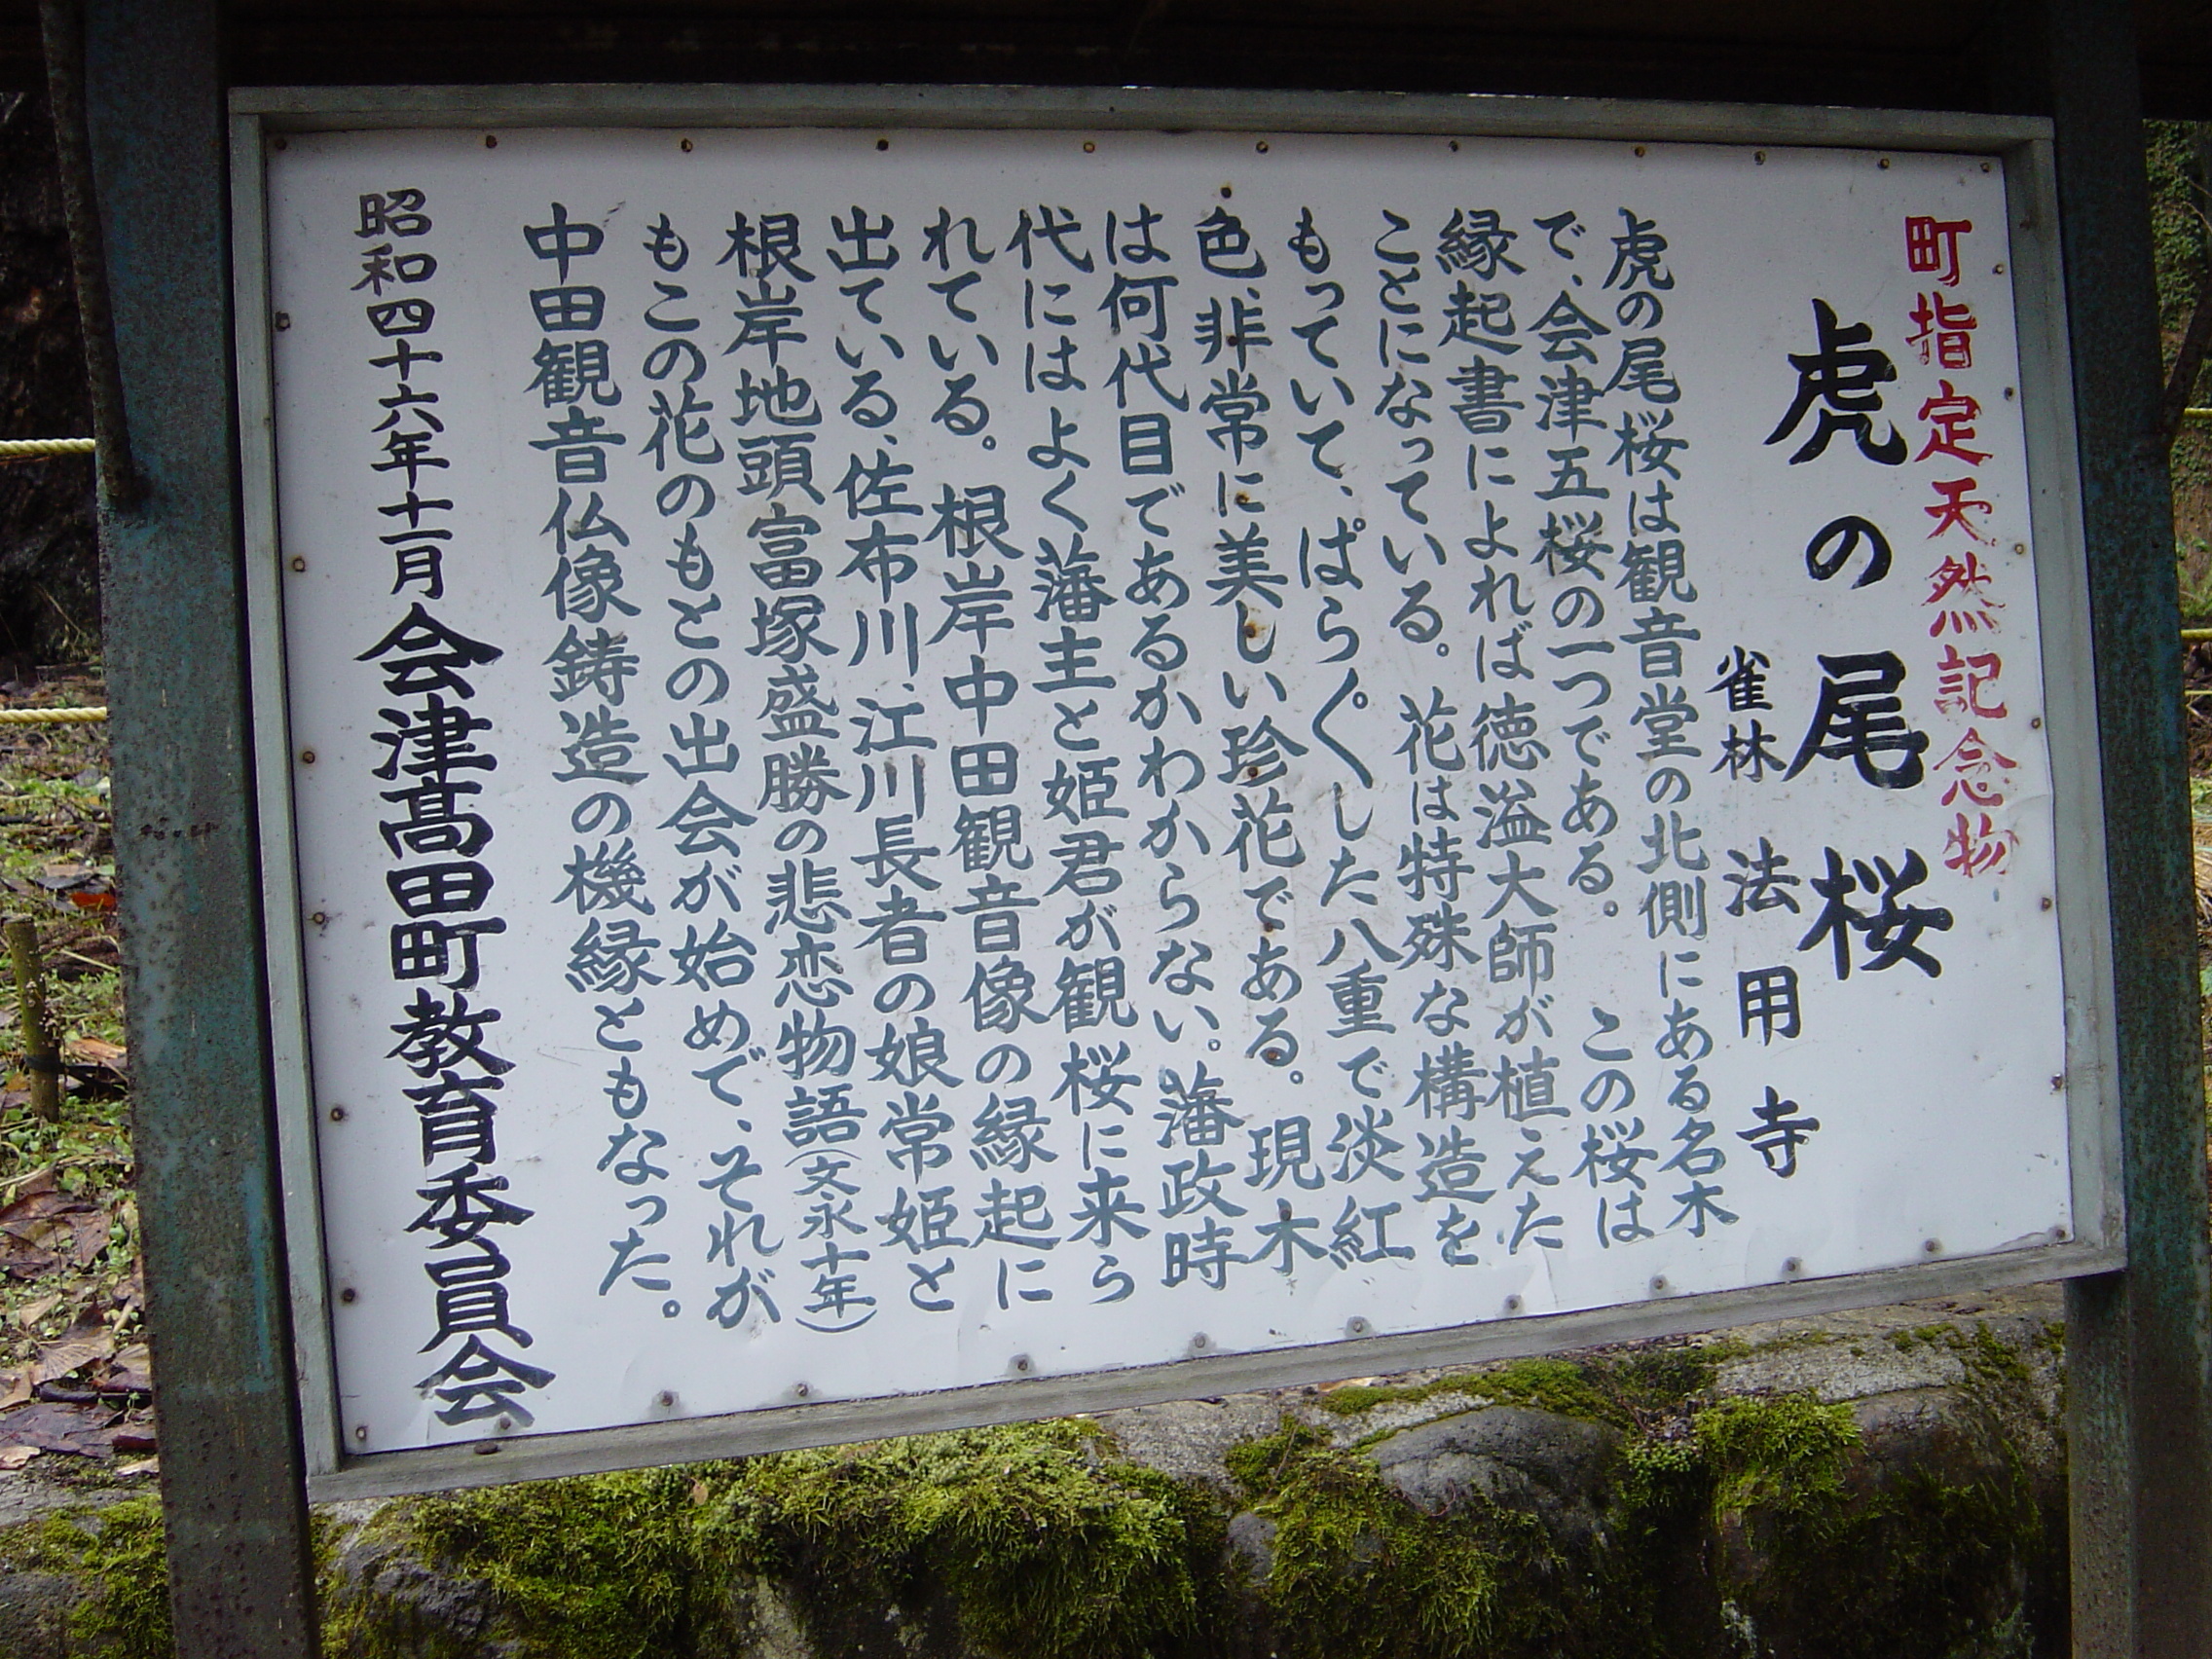 町指定天然記念物
虎の尾桜
雀林 法用寺
虎の尾桜は観音堂の北側にある名木
で、会津五桜の一つである。 この桜は
縁起書によれば徳溢大師が植えた
ことになっている。花は特殊な構造を
もっていて、ぱら〲した八重で淡紅
色、非常に美しい珍花である。現木
は何代目であるかわからない。藩政時
代にはよく藩主と姫君が観桜に来ら
れている。根岸中田観音像の縁起に
出ている、佐布川、江川長者の娘常姫と
根岸地頭富塚盛勝の悲恋物語(文永十年)
もこの花のもとの出会が始めで、それが
中田観音仏像鋳造の機縁ともなった。
昭和四十六年十一月 会津高田町教育委員会